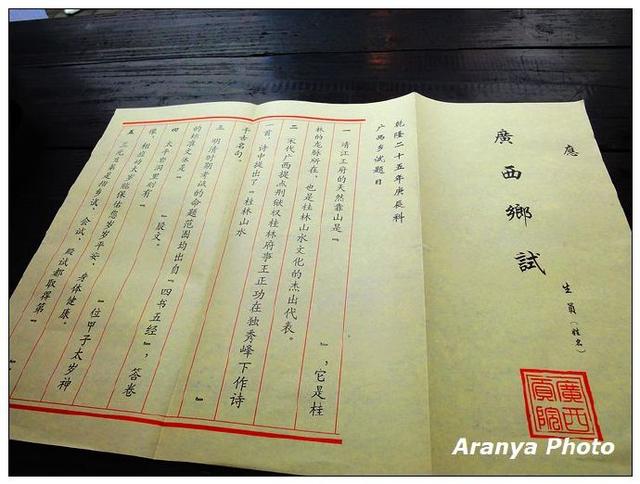 應
廣西鄉試
生員（姓名）
廣西貢院
乾隆二十五年庚辰科
广西乡试题目
一 靖江王府的天然靠山是“ ”，它是桂
林的龙脉所在，也是桂林山水文化的杰出代表。
二 宋代广西提点刑狱权桂林府事王正功在独秀峰下作诗
一首，诗中提出了“桂林山水 ”
千古名句。
三 明清时期考试的命题范围均出自“四书五经”，答卷
的标准文体是“ ”股文。
四 太平岩洞里刻有“ ”位甲子太岁神
像，相应的太岁临保佑您岁岁平安、身体健康。
五 三元及第是指乡试、会试、殿试都取得第“ ”
Aranya Photo